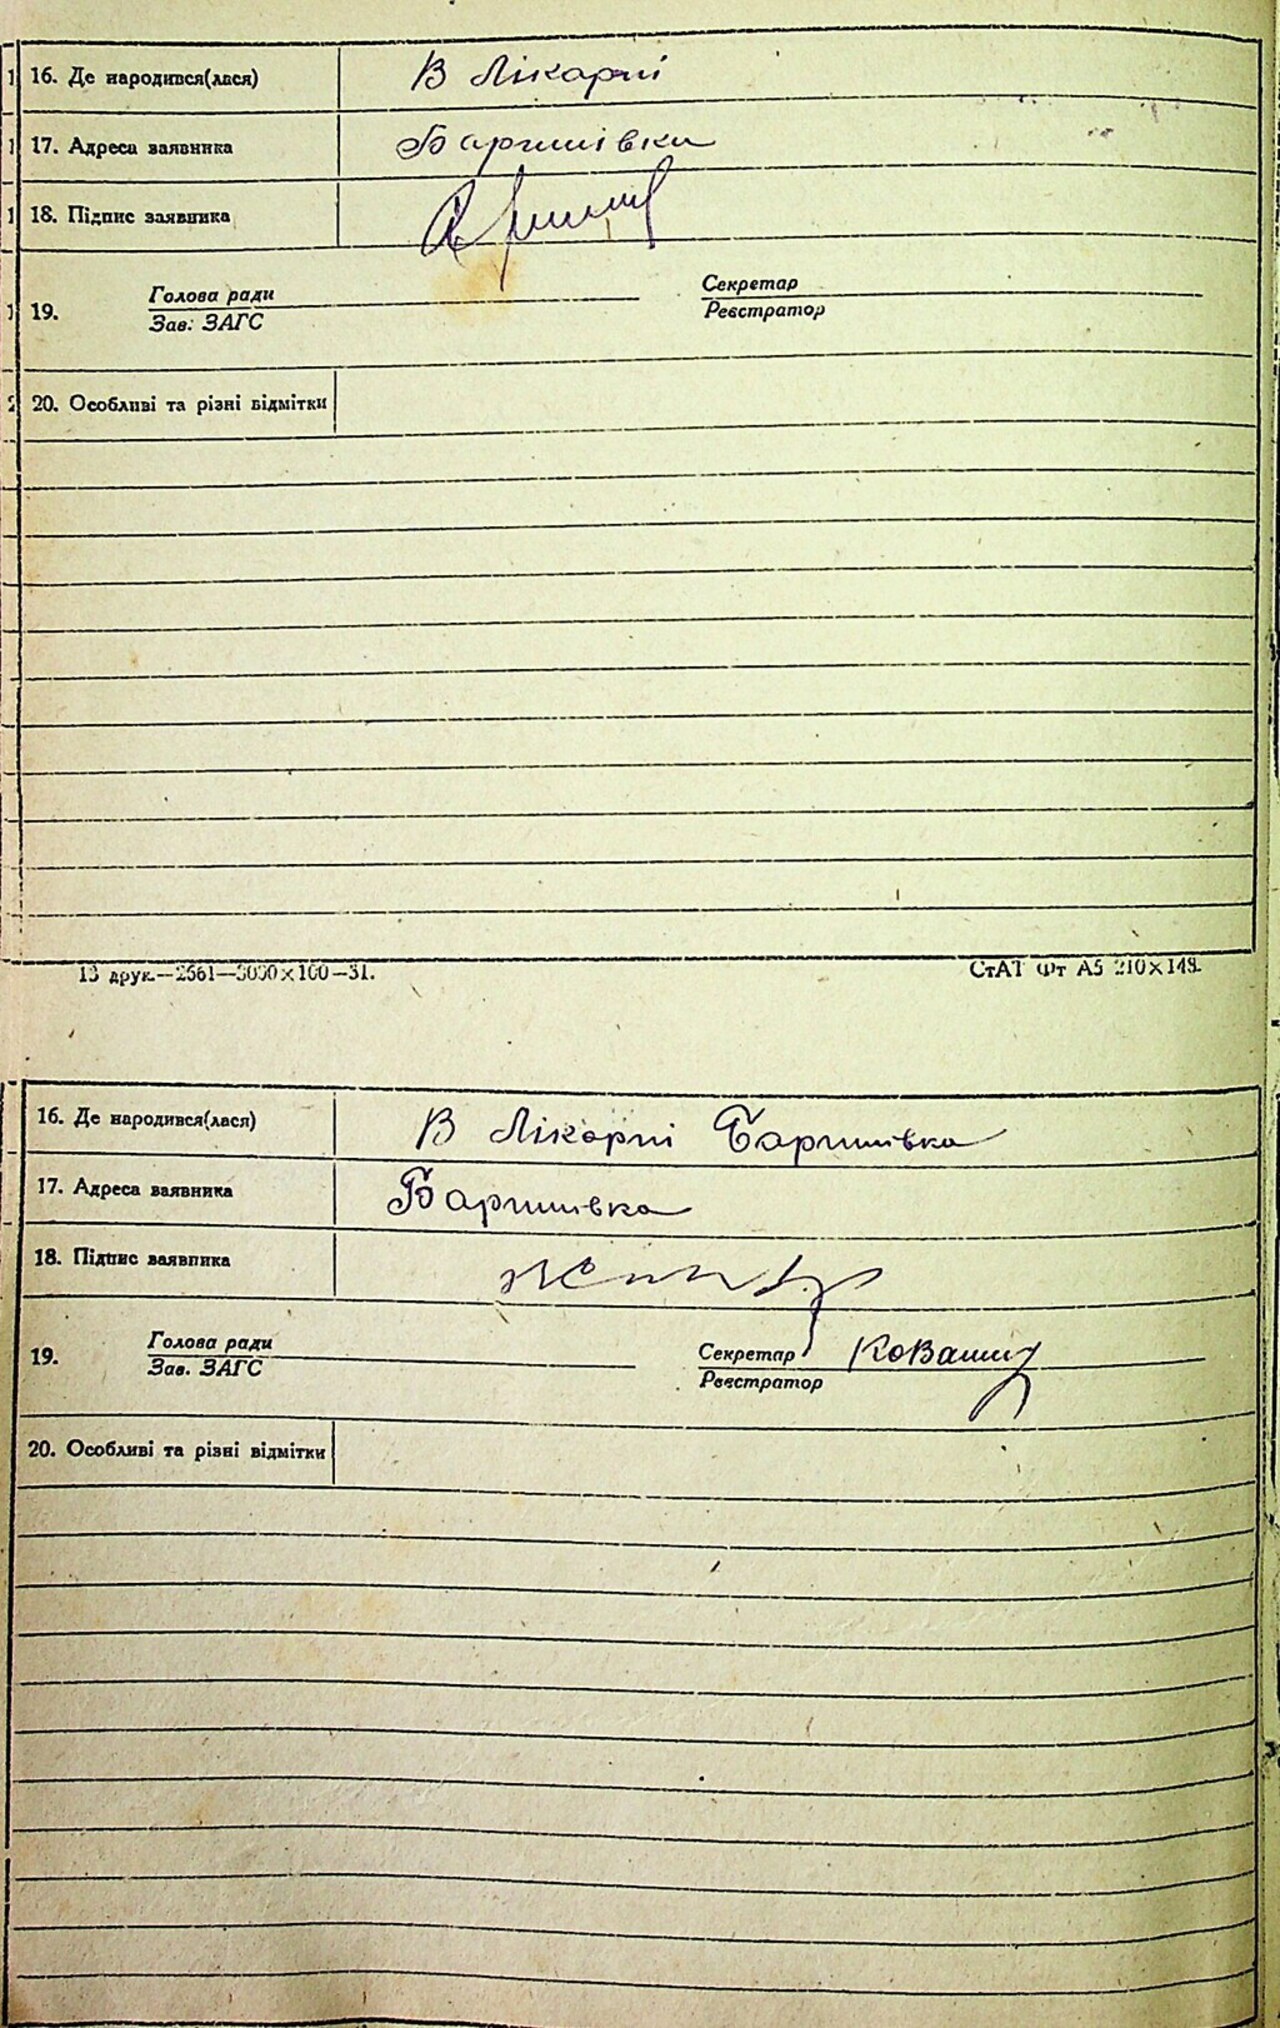 16. Де народився(лася) В Лікарні
17. Адреса заявника Баришівка
18. Підпис заявника
19. Голова ради Секретар
Зав. ЗАГС Реєстратор
20. Особливі та різні відмітки
13 друк.—2661—5000×100—31. СтАТ Фт А5 210×148.
16. Де народився(лася) В Лікарні Баришівка
17. Адреса заявника Баришівка
18. Підпис заявника
19. Голова ради Секретар
Зав. ЗАГС Реєстратор
20. Особливі та різні відмітки